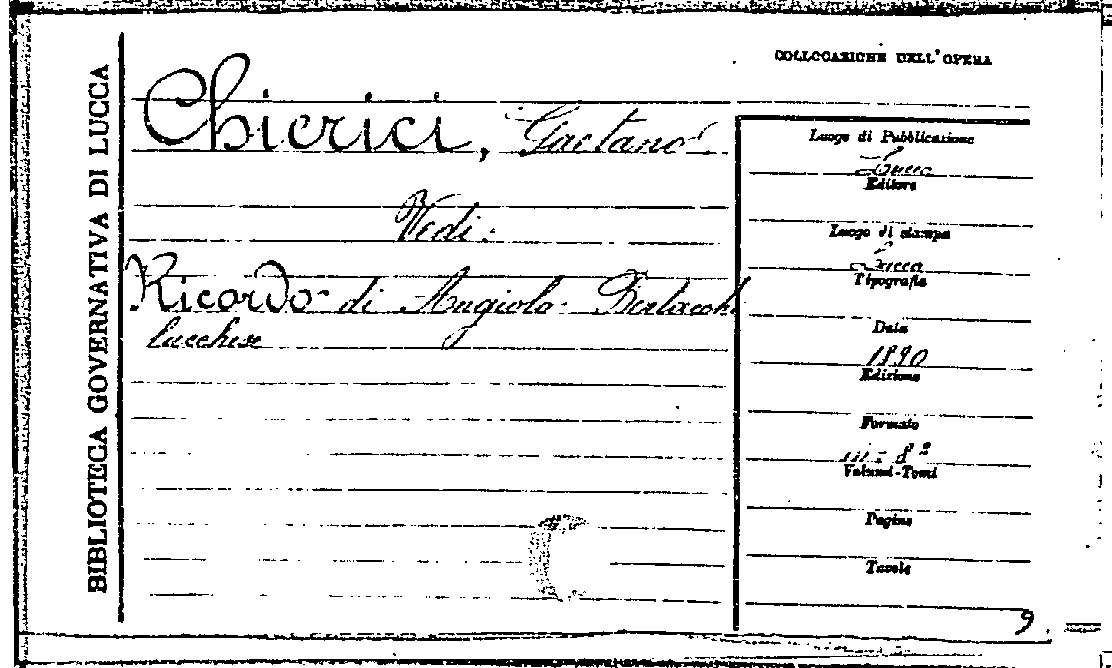 BIBLIOTECA GOVERNATIVA DI LUCCA
COLLOCAZIONE DELL'OPERA
Chierici, Gaetano
Vedi:
Ricordo di Angiola
lucchese
Luogo di Pubblicazione
Lucca
Editore
Luogo di stampa
Lucca
Tipografia
Data
1890
Edizione
Formato
in-8°
Volumi-Tomi
Pagine
Tavole
9.